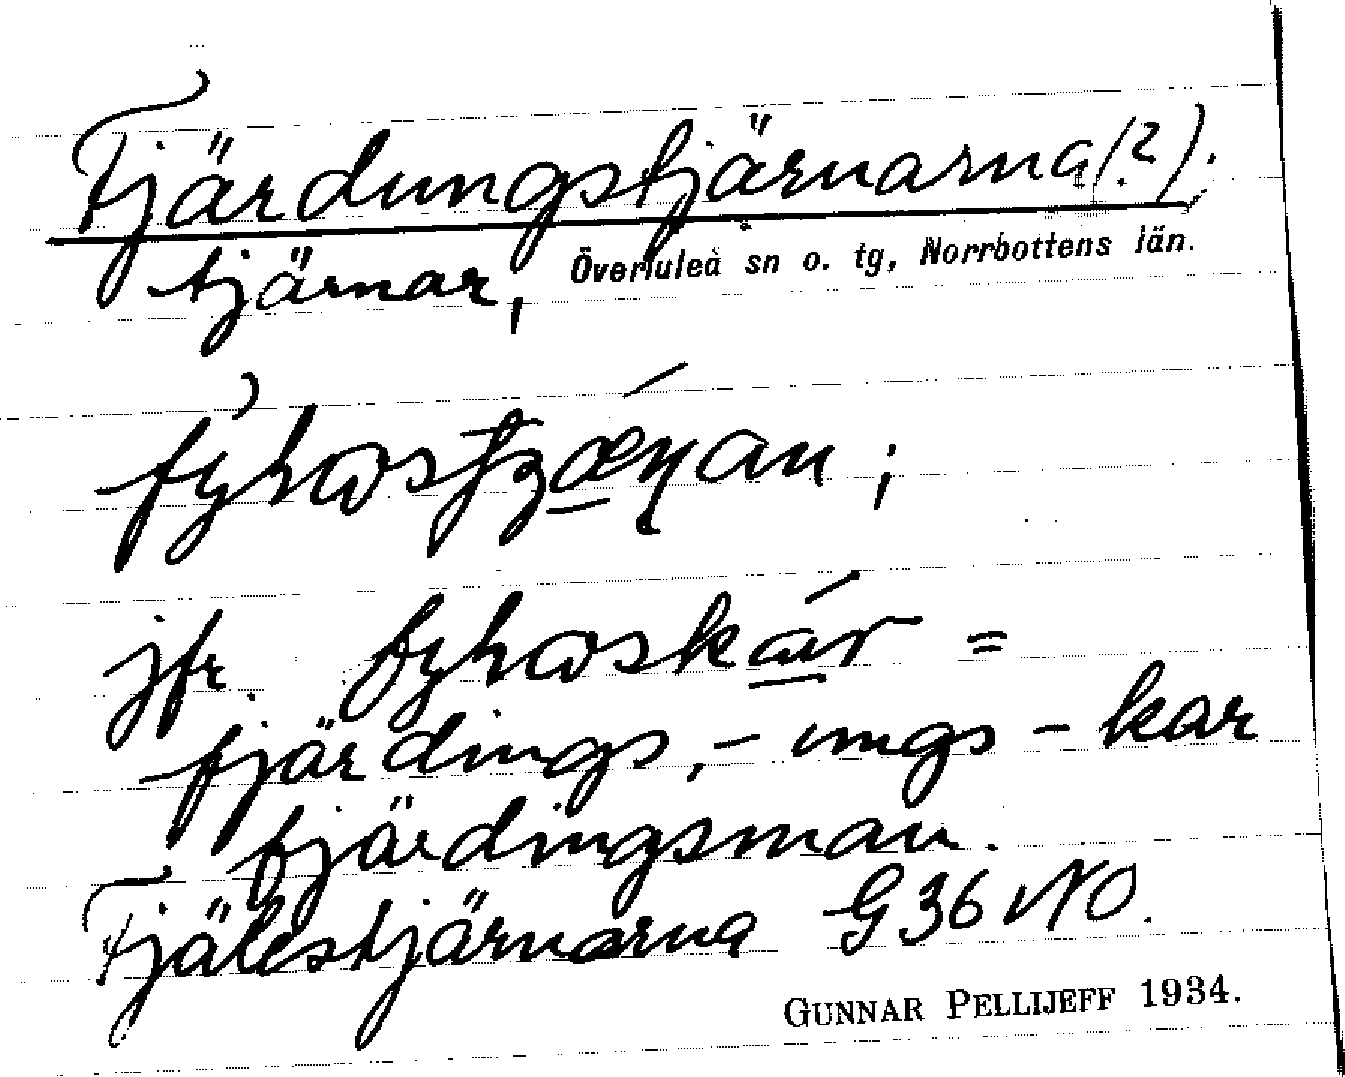 Fjärdungstjärnarna(?).
tjärnar, Överluleå sn o. tg, Norrbottens län.
jfr.
=
fjärdings, - ungs - kar
fjärdingsman.
Fjälestjärnarna G 36 NO.
GUNNAR PELLIJEFF 1934.